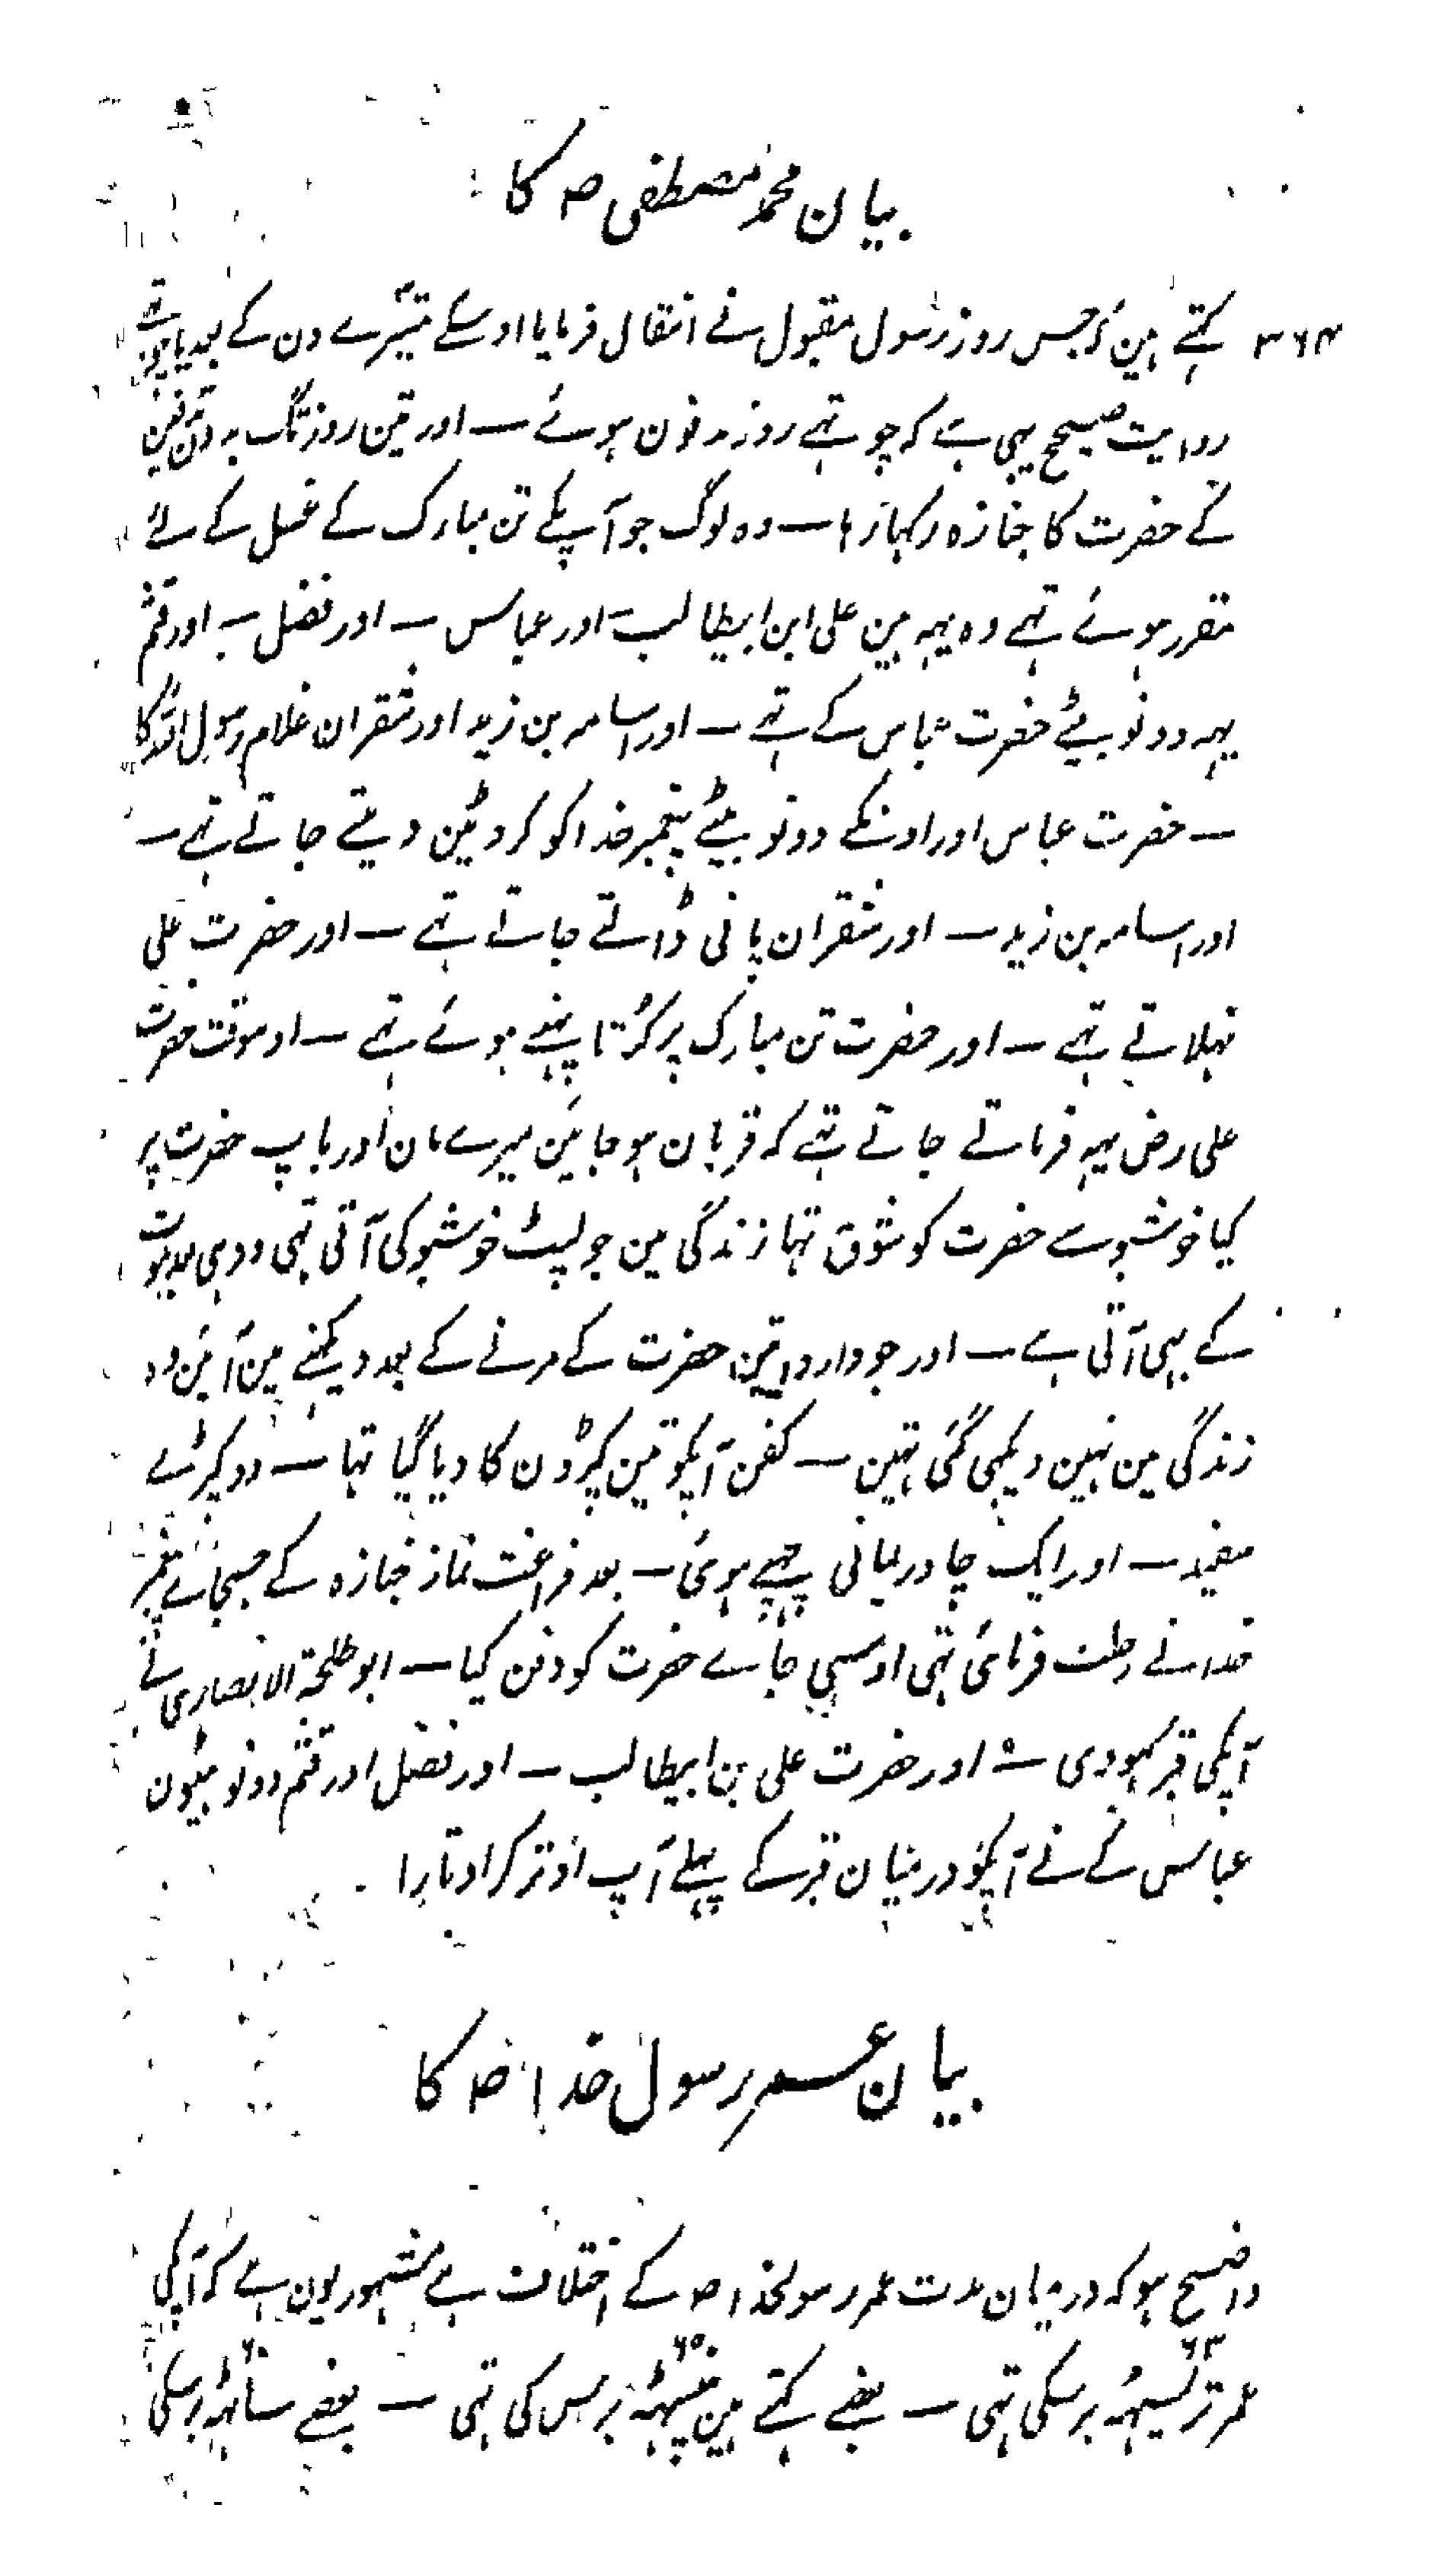 بیان محمد مصطفی ص کا
۳۶۴ کہتے ہین کہ جس روز رسول مقبول نے انتقال فرمایا اوسکے تیسرے دن کے بعد یا چوتھے
روایت صحیح یہی ہے کہ چوتہے روز مدفون ہوئے — اور تین روز تک بدون تدفین
کے حضرت کا جنازہ رکہا رہا — وہ لوگ جو آپکے تن مبارک کے غسل کے لئے
مقرر ہوئے تہے وہ یہہ ہین علی ابن ابیطالب — اور عباس — اور فضل — اور قثم
یہہ دونو بیٹے حضرت عباس کے تہے — اور اسامہ بن زید اور شقران غلام رسول اللہ کا
— حضرت عباس اور اونکے دونو بیٹے پیغمبر خدا کو کروٹین دیتے جاتے تہے —
اور اسامہ بن زید — اور شقران پانی ڈالتے جاتے تہے — اور حضرت علی
نہلاتے تہے — اور حضرت تن مبارک پر کرتا پہنے ہوئے تہے — اوسوقت حضرت
علی رض یہہ فرماتے جاتے تہے کہ قربان ہو جائین میرے مان اور باپ حضرت پر
کیا خوشبو سے حضرت کو شوق تہا زندگی مین جو لپٹ خوشبو کی آتی تہی ووہی بعد موت
کے بہی آتی ہے — اور جو وارداتین حضرت کے مرنے کے بعد دیکہنے مین آئین وہ
زندگی مین نہین دیکہی گئی تہین — کفن آپکو تین کپڑون کا دیا گیا تہا — دو کپڑے
سفید — اور ایک چادر یمانی چہپے ہوئی — بعد فراغت نماز جنازہ کے جسجاے پیغمبر
خدا نے رحلت فرمائی تہی اوسہی جاے حضرت کو دفن کیا — ابو طلحۃ الانصاری نے
آپکی قبر کہودی — اور حضرت علی بن ابیطالب — اور فضل اور قثم دونو بیٹون
عباس کے نے آپکو درمیان قبر کے پہلے آپ اوتر کر اوتارا
بیان عمر رسول خدا ص کا
واضح ہو کہ درمیان مدت عمر رسولخدا ص کے اختلاف ہے مشہور یون ہے کہ آپکی
عمر ترسیہہ ۶۳ برسکی تہی — بعضے کہتے ہین پینسہٹہ ۶۵ برس کی تہی — بعضے ساٹہہ ۶۰ برسکی